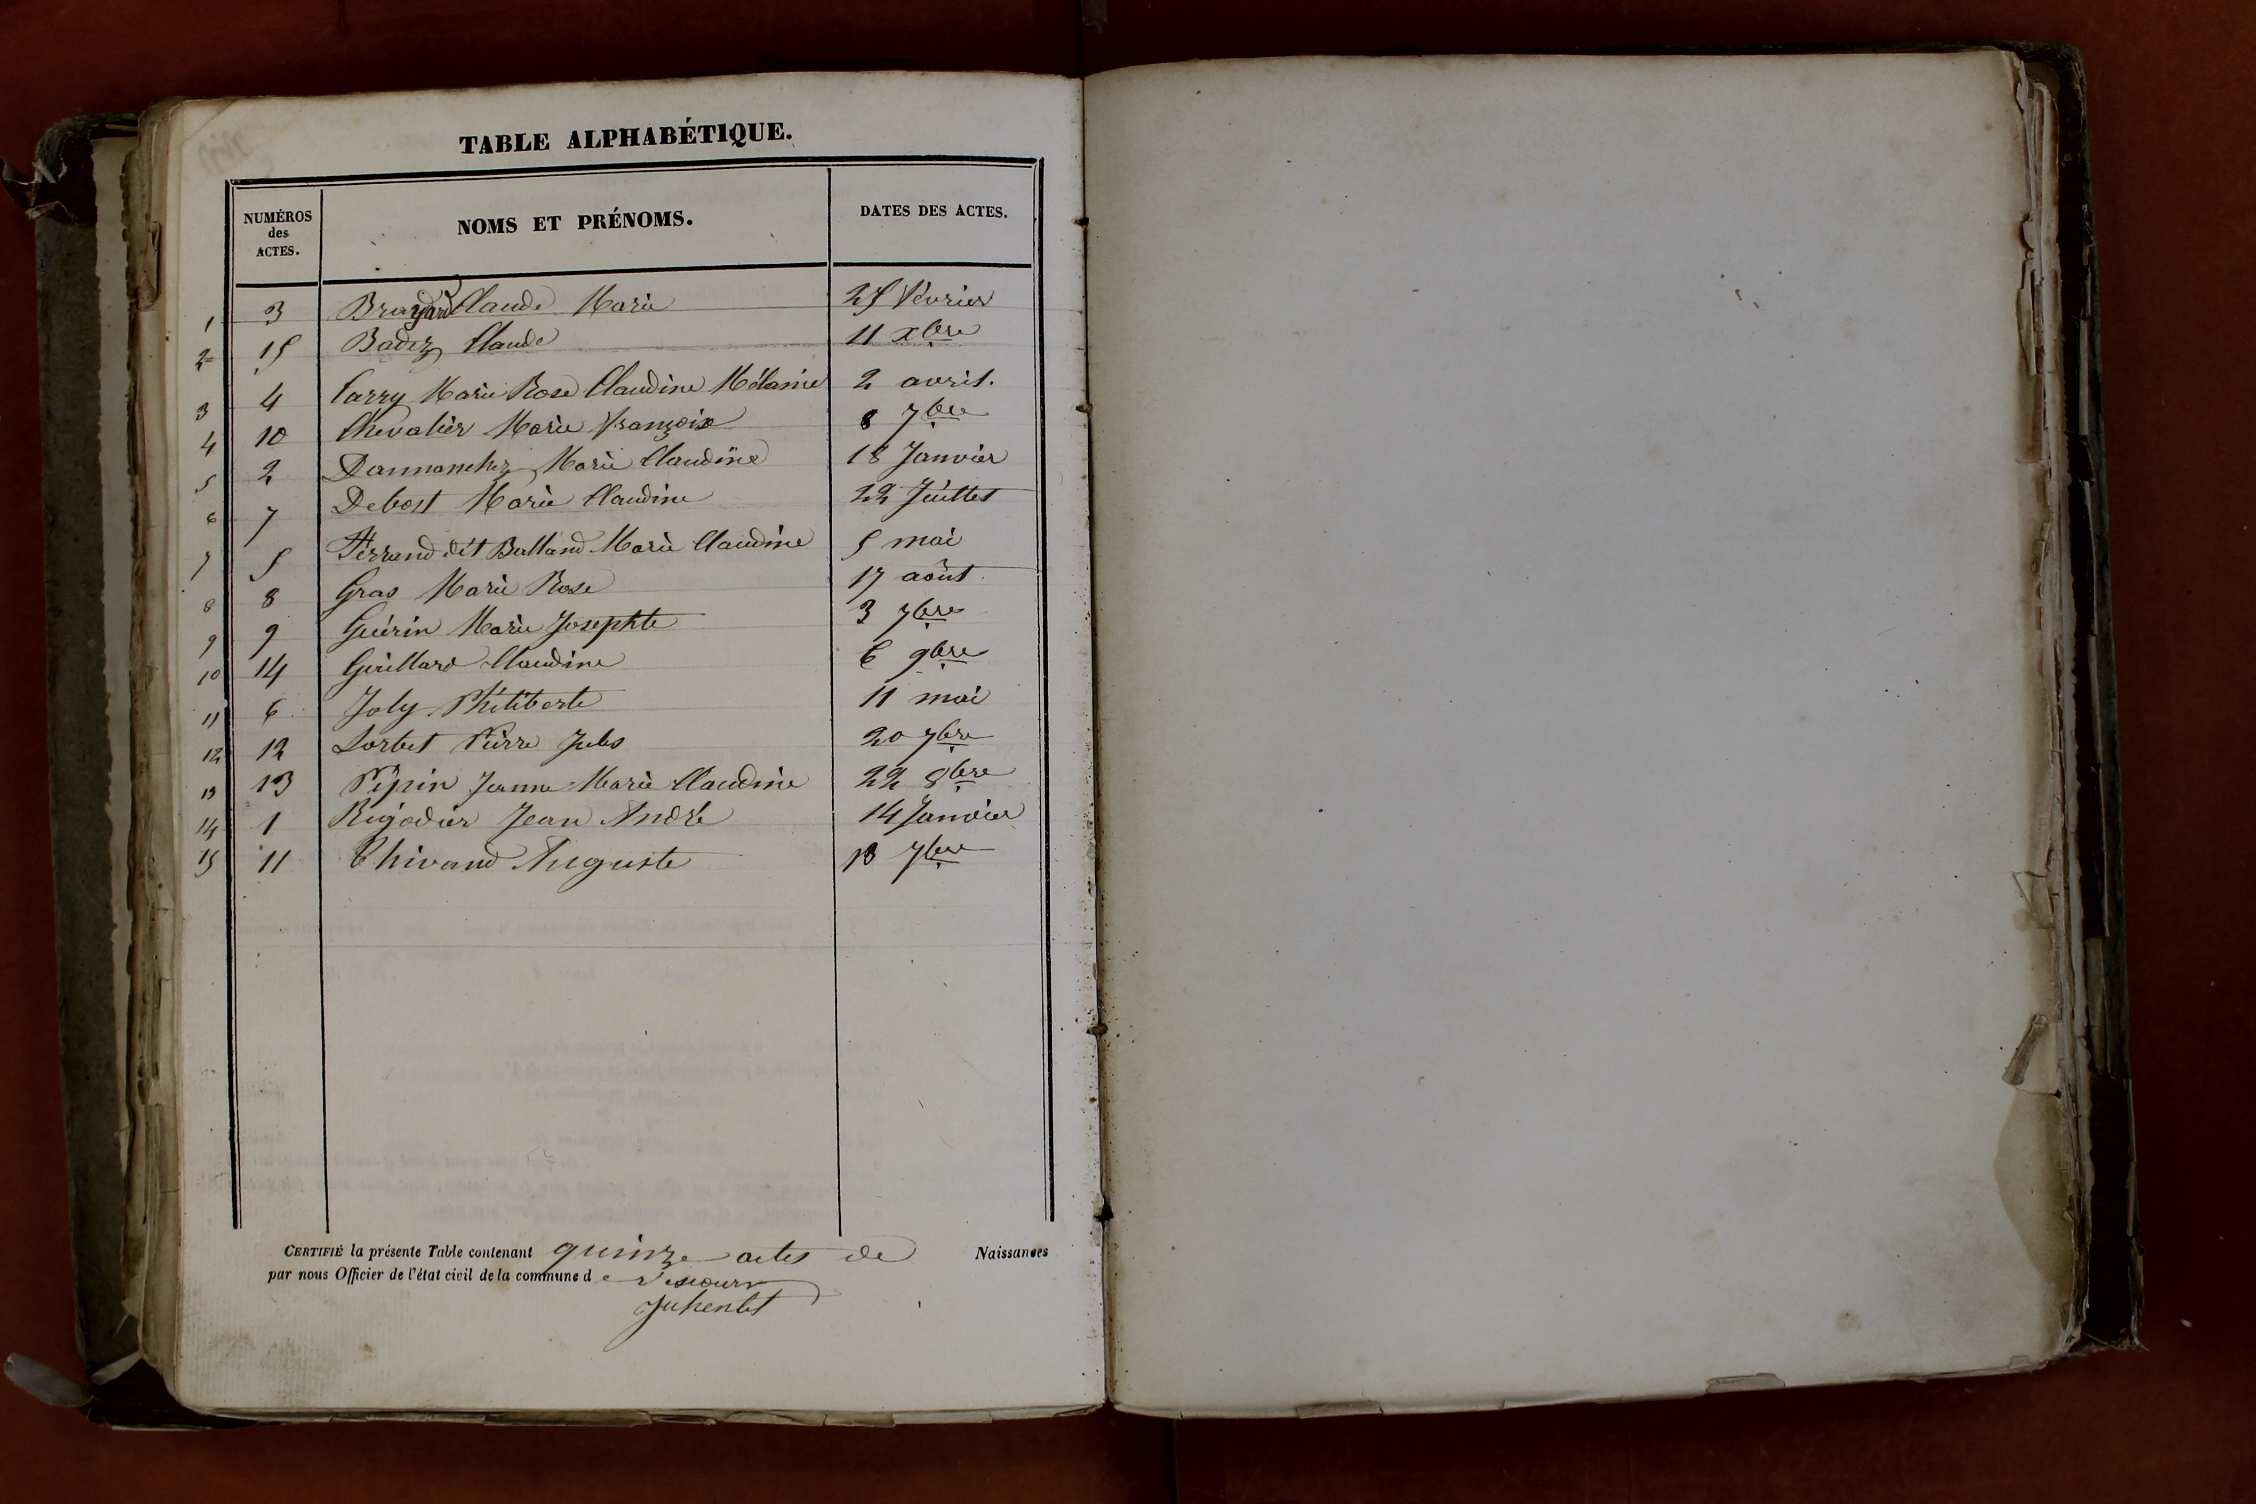 TABLE ALPHABÉTIQUE.
NUMÉROS des ACTES. NOMS ET PRÉNOMS. DATES DES ACTES.
1 3 Claude Marie 25 février
2 15 Badez Claude 11 Xbre
3 4 Carry Marie Rose Claudine Mélanie 2 avril.
4 10 Chevalier Marie François 8 7bre
5 2 Dannanchez Marie Claudine 18 Janvier
6 7 Debost Marie Claudine 22 Juillet
7 5 Ferrand dit Balland Marie Claudine 5 mai
8 8 Gras Marie Rose 17 août
9 9 Guérin Marie Josephte 3 7bre
10 14 Guillard Claudine 6 9bre
11 6 Joly Philiberte 11 mai
12 12 Lorbet Pierre Jules 20 7bre
13 13 Pépin Jeanne Marie Claudine 22 8bre
14 1 Rigodier Jean André 14 Janvier
15 11 Thivand Auguste 13 7bre
CERTIFIÉ la présente Table contenant quinze actes de Naissances
par nous Officier de l'état civil de la commune de